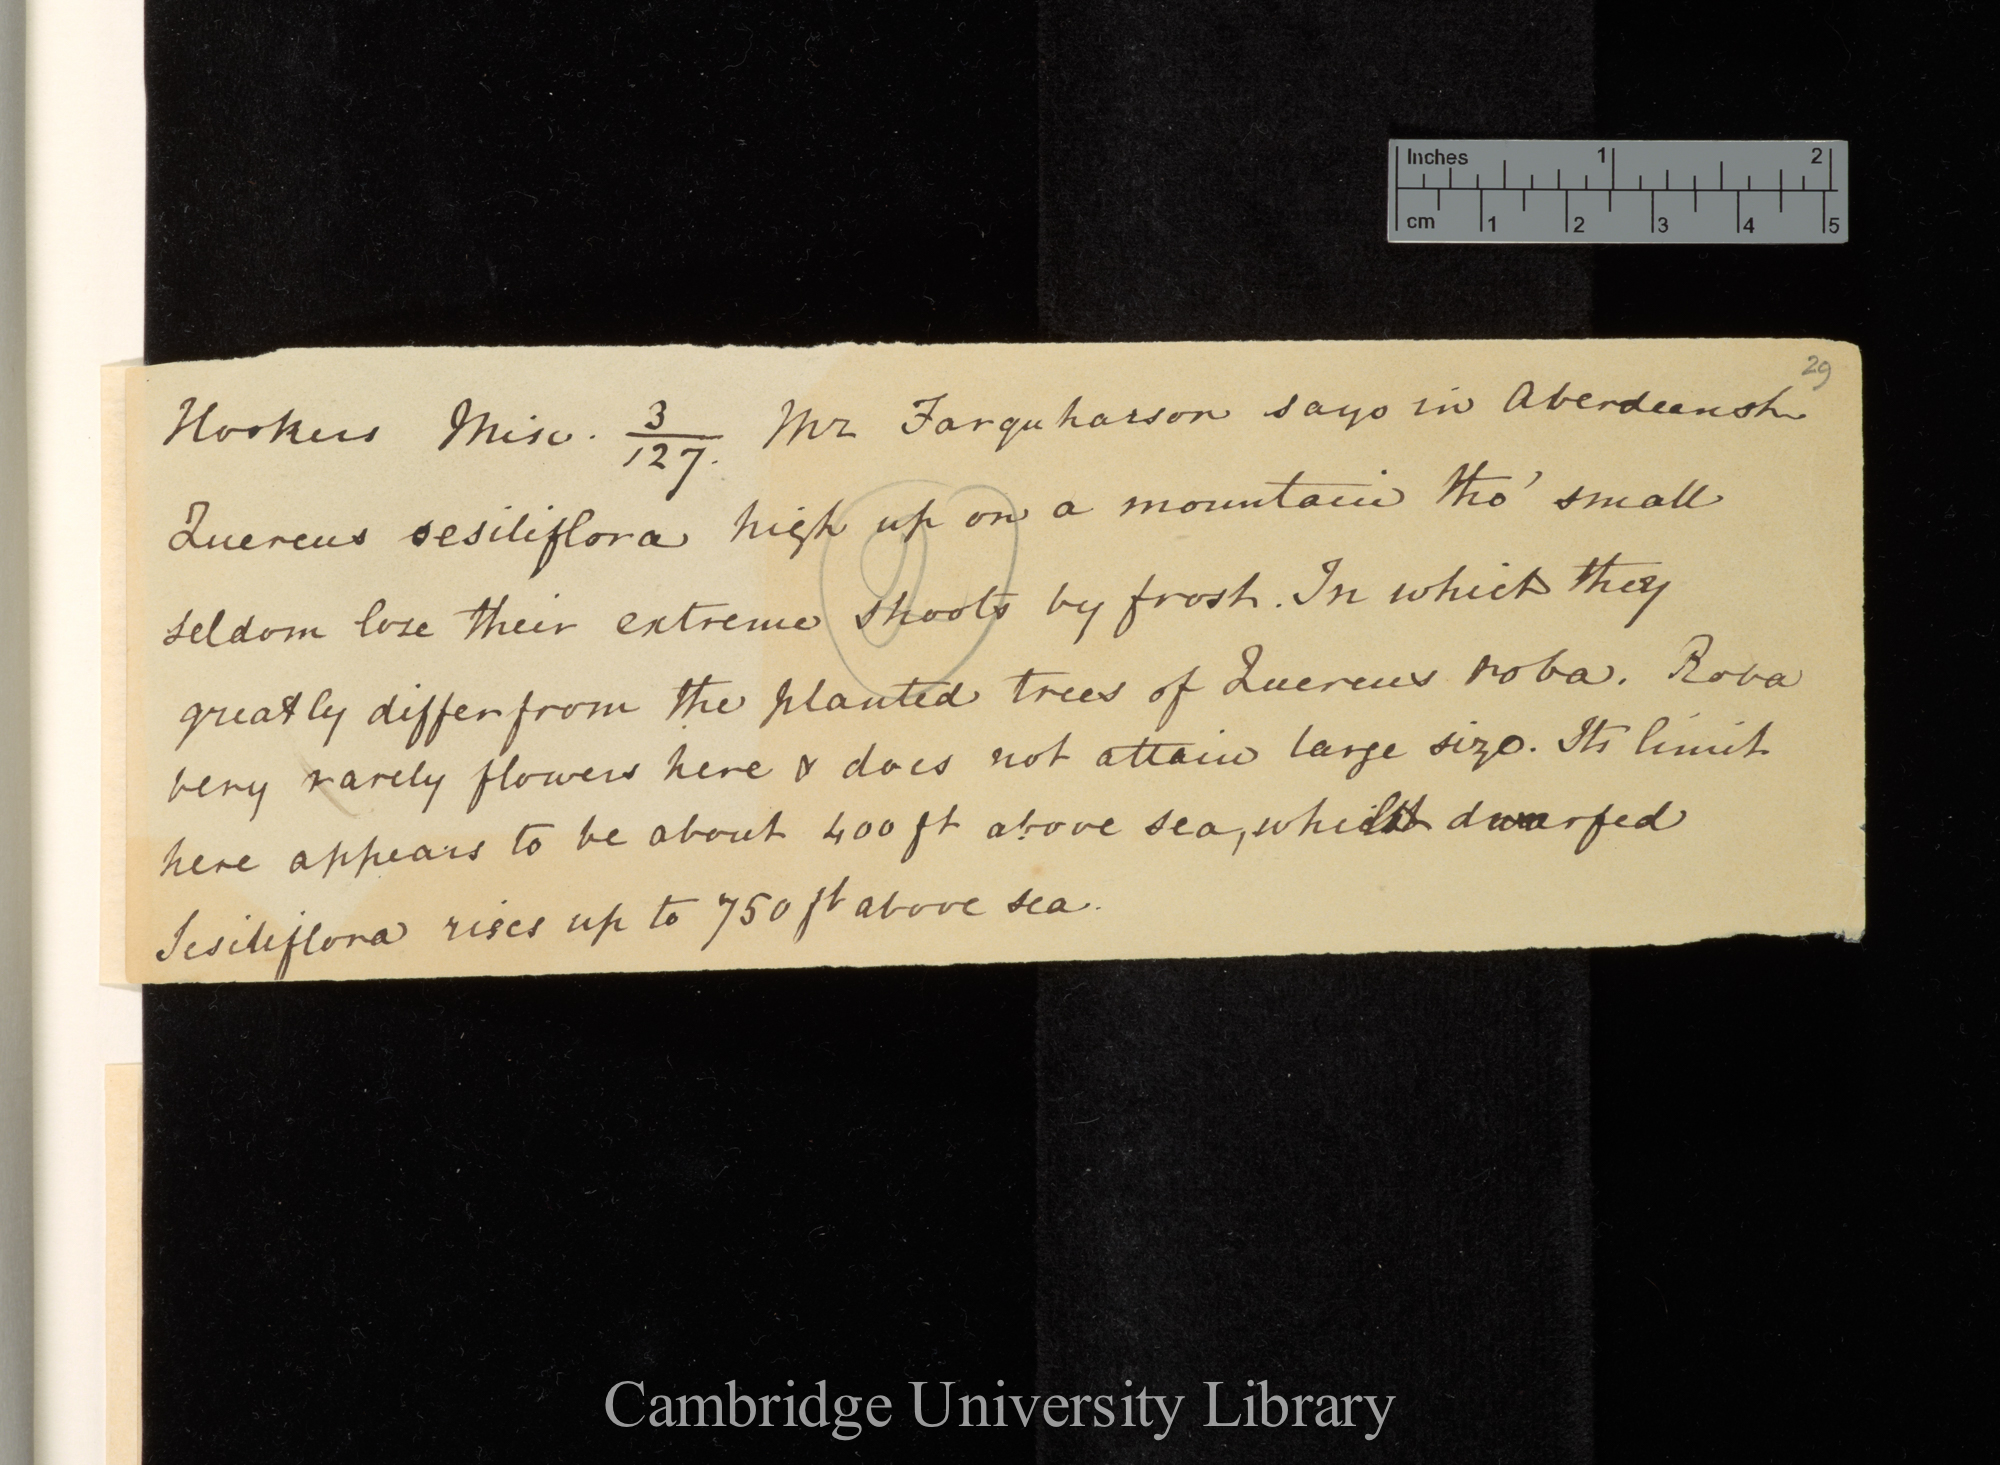 Inches 1 2
cm 1 2 3 4 5
29
Hookers Misc. 3/127. Mr Farquharson says in Aberdeensh
Quercus sesiliflora high up on a mountain tho' small
seldom lose their extreme shoots by frost. In which they
greatly differ from the planted trees of Quercus roba. Roba
very rarely flowers here & does not attain large size. Its limit
here appears to be about 400 ft above sea, whilst dwarfed
Sesiliflora rises up to 750 ft above sea.
Cambridge University Library